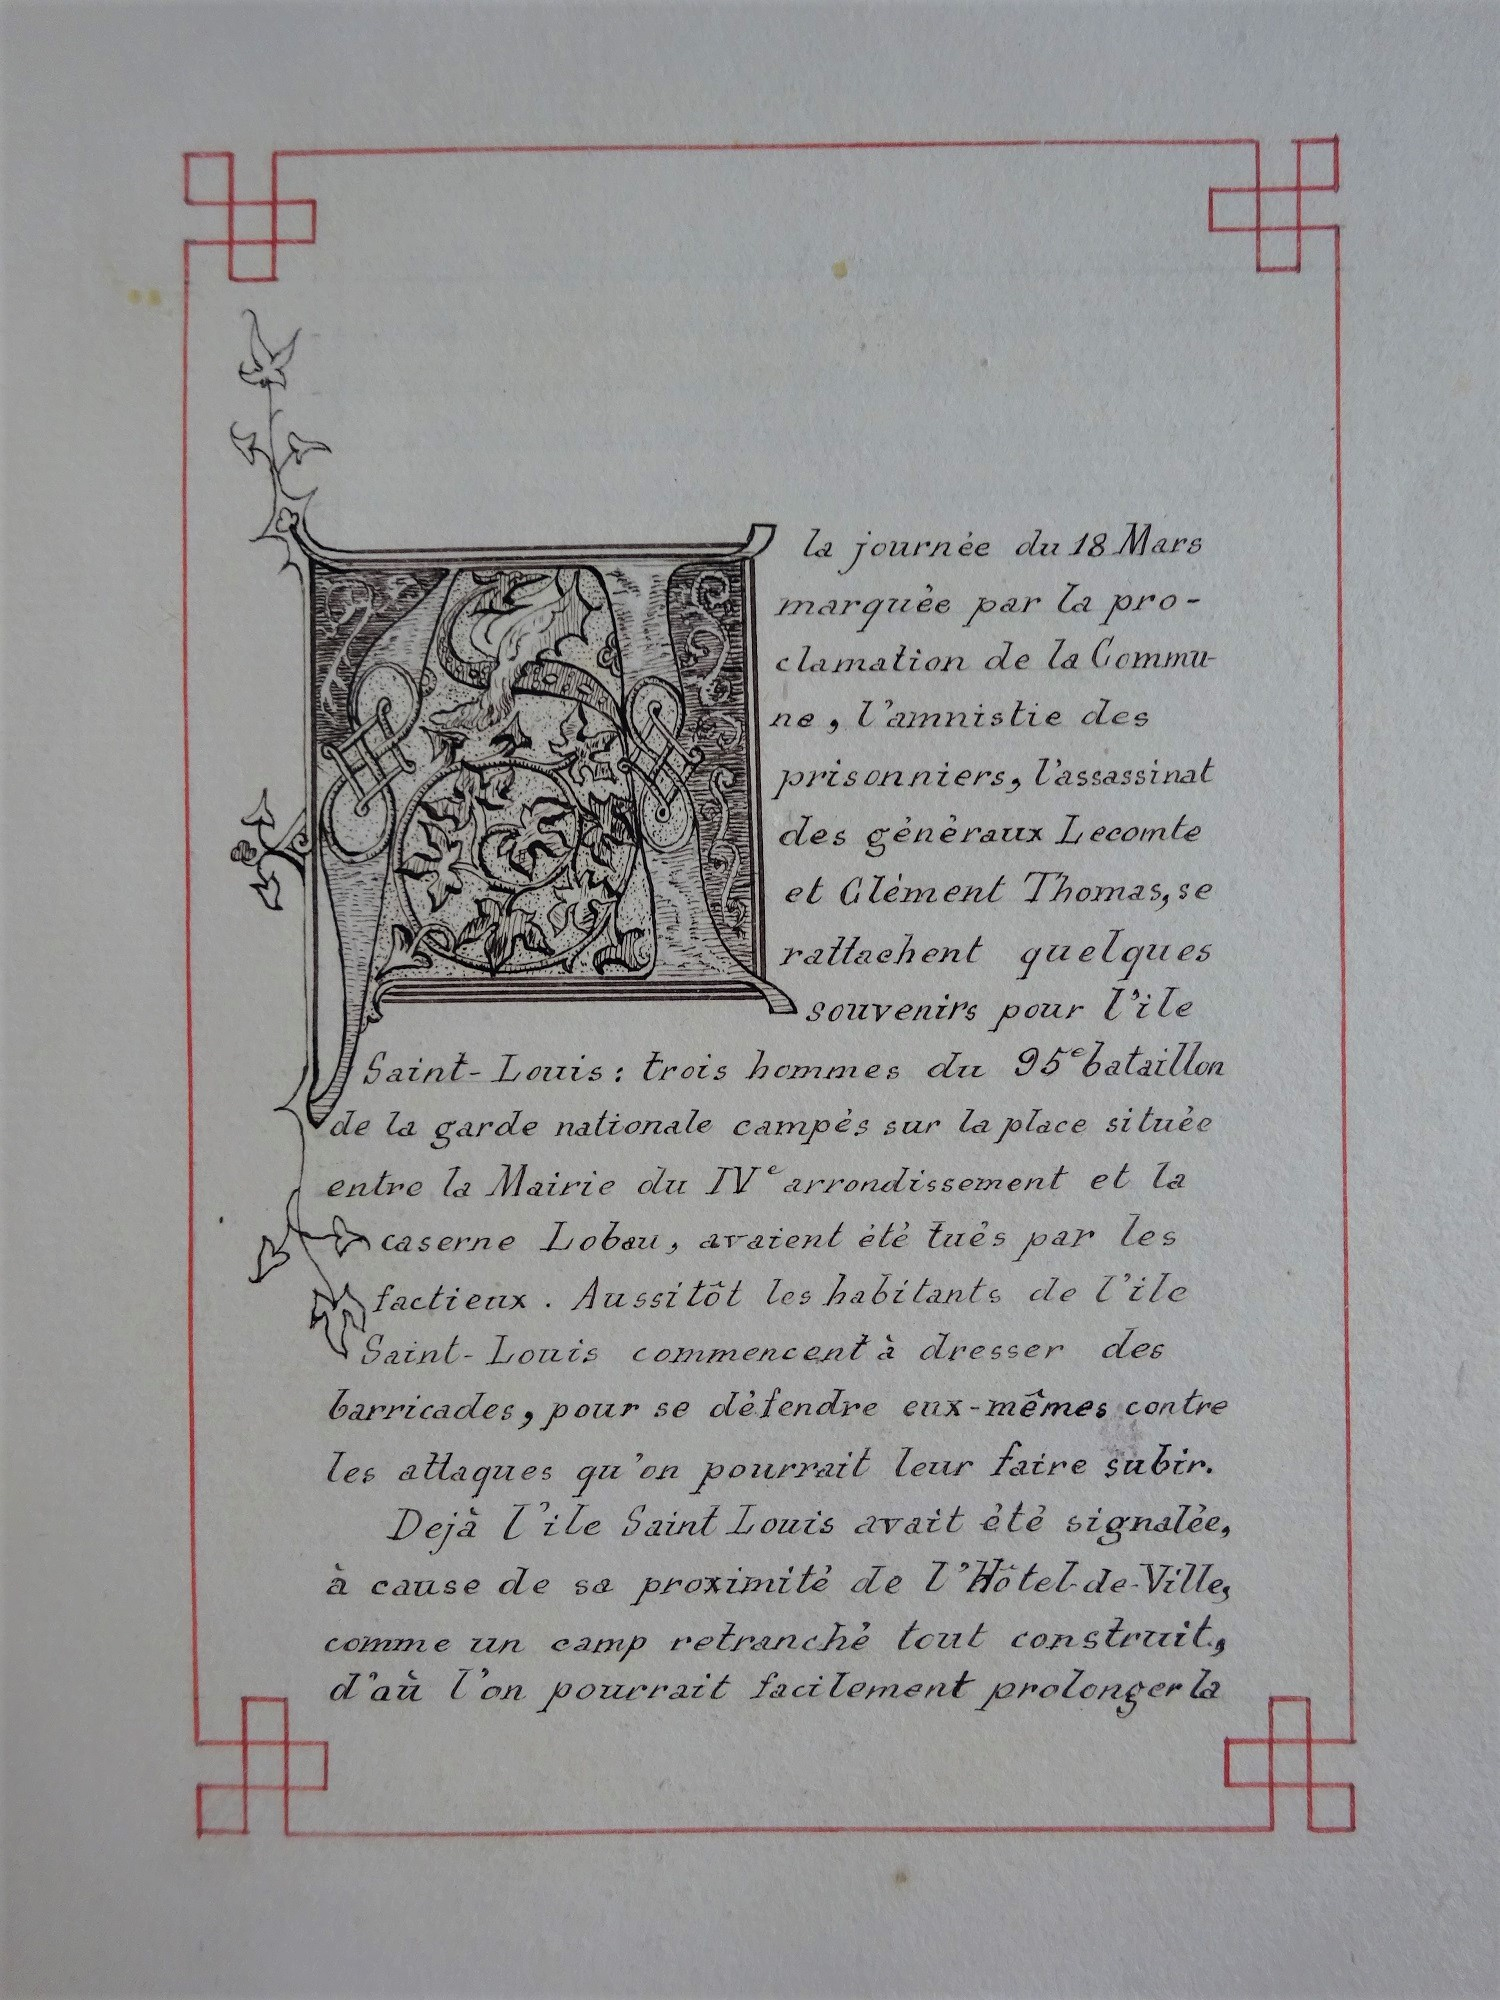 A la journée du 18 Mars
marquée par la pro-
clamation de la Commu-
ne, l'amnistie des
prisonniers, l'assassinat
des généraux Lecomte
et Clément Thomas, se
rattachent quelques
souvenirs pour l'ile
Saint-Louis : trois hommes du 95e bataillon
de la garde nationale campés sur la place située
entre la Mairie du IVe arrondissement et la
caserne Lobau, avaient été tués par les
factieux. Aussitôt les habitants de l'ile
Saint-Louis commencent à dresser des
barricades, pour se défendre eux-mêmes contre
les attaques qu'on pourrait leur faire subir.
Dejà l'ile Saint Louis avait été signalée,
à cause de sa proximité de l'Hôtel-de-Ville,
comme un camp retranché tout construit,
d'où l'on pourrait facilement prolonger la